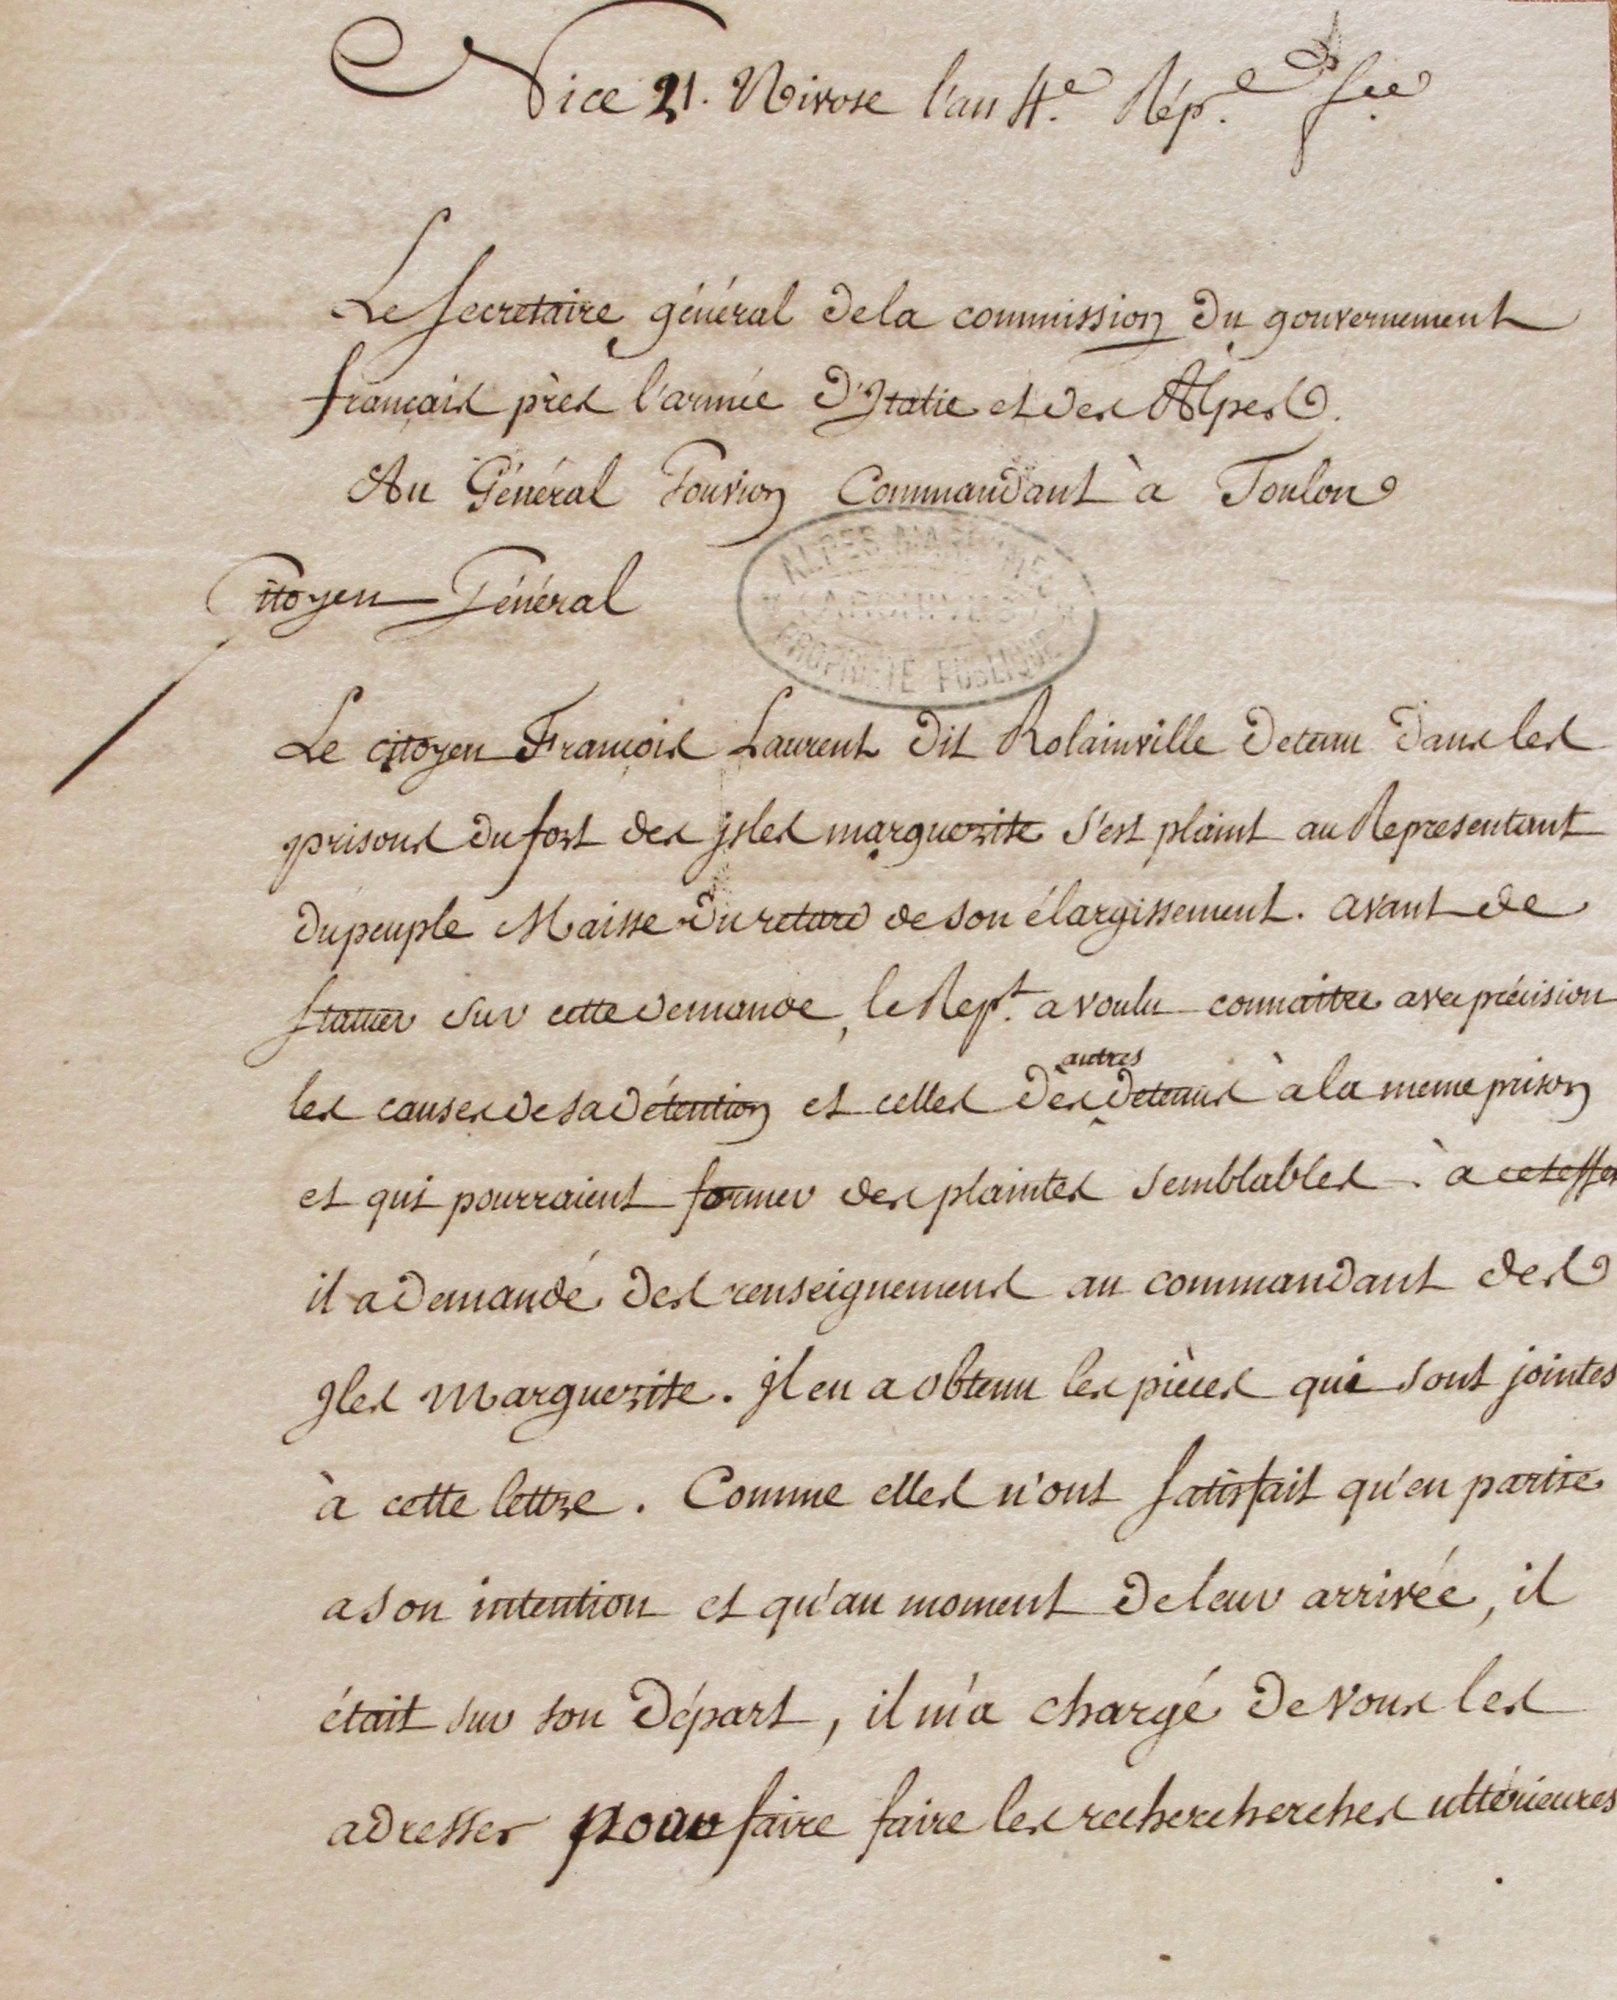 Nice 21. Nivose l'an 4.e Rép.e f.se
Le secretaire général de la commission du gouvernement
français près l'armée d'Italie et des Alpes.
Au Général Pouvion Commandant à Toulon
ALPES MARITIMES
ARCHIVES
PROPRIETE PUBLIQUE
Citoyen Général
Le citoyen François Laurent dit Rolainville detenu dans les
prisons du fort des isles marguerite s'est plaint au Representant
du peuple Maisse du retard de son élargissement. avant de
statuer sur cette demande, le Rep.t a voulu connaitre avec précision
autres
les causes de sa détention et celles des detenus à la meme prison
et qui pourraient former des plaintes semblables. à cet effet
il a demandé des renseignemens au commandant des
Iles Marguerite. Il en a obtenu les pièces qui sont jointes
à cette lettre. Comme elles n'ont satisfait qu'en partie
a son intention et qu'au moment de leur arrivée, il
était sur son départ, il m'a chargé de vous les
adresser pour faire faire les recherchercher ultérieures